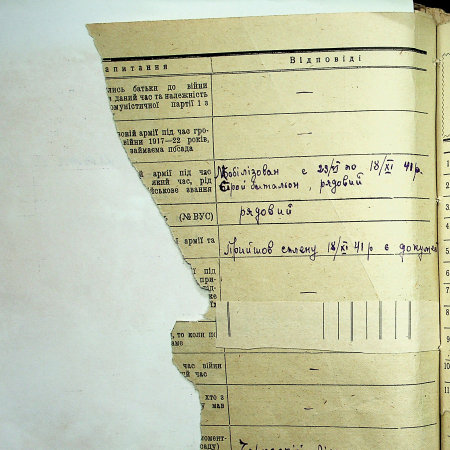 апитання
Відповіді
лись батьки до війни
даний час та належність
омуністичної партії і з
—
зовій армії під час гро-
війни 1917—22 років,
займаєма посада
—
ій армії під час
який час, рід
йськове звання
Мобілізован с 23/VI по 18/XI 41 р.
Строй батальон, рядовий
(№ ВУС)
рядовий
й армії та
Прийшов с плену 18/XI 41 р є докумен
ії під
при-
під-
ке
їх
то, то коли по
аме
—
час війни
ий час
—
хто з
у мав
—
ломент-
осаду)
1
2
3
4
5
6
7
8
9
10
11